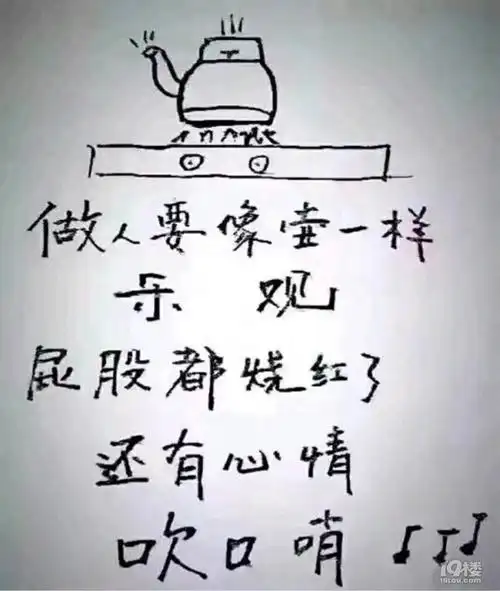 做人要像壶一样
乐观
屁股都烧红了
还有心情
吹口哨
19楼
19lou.com